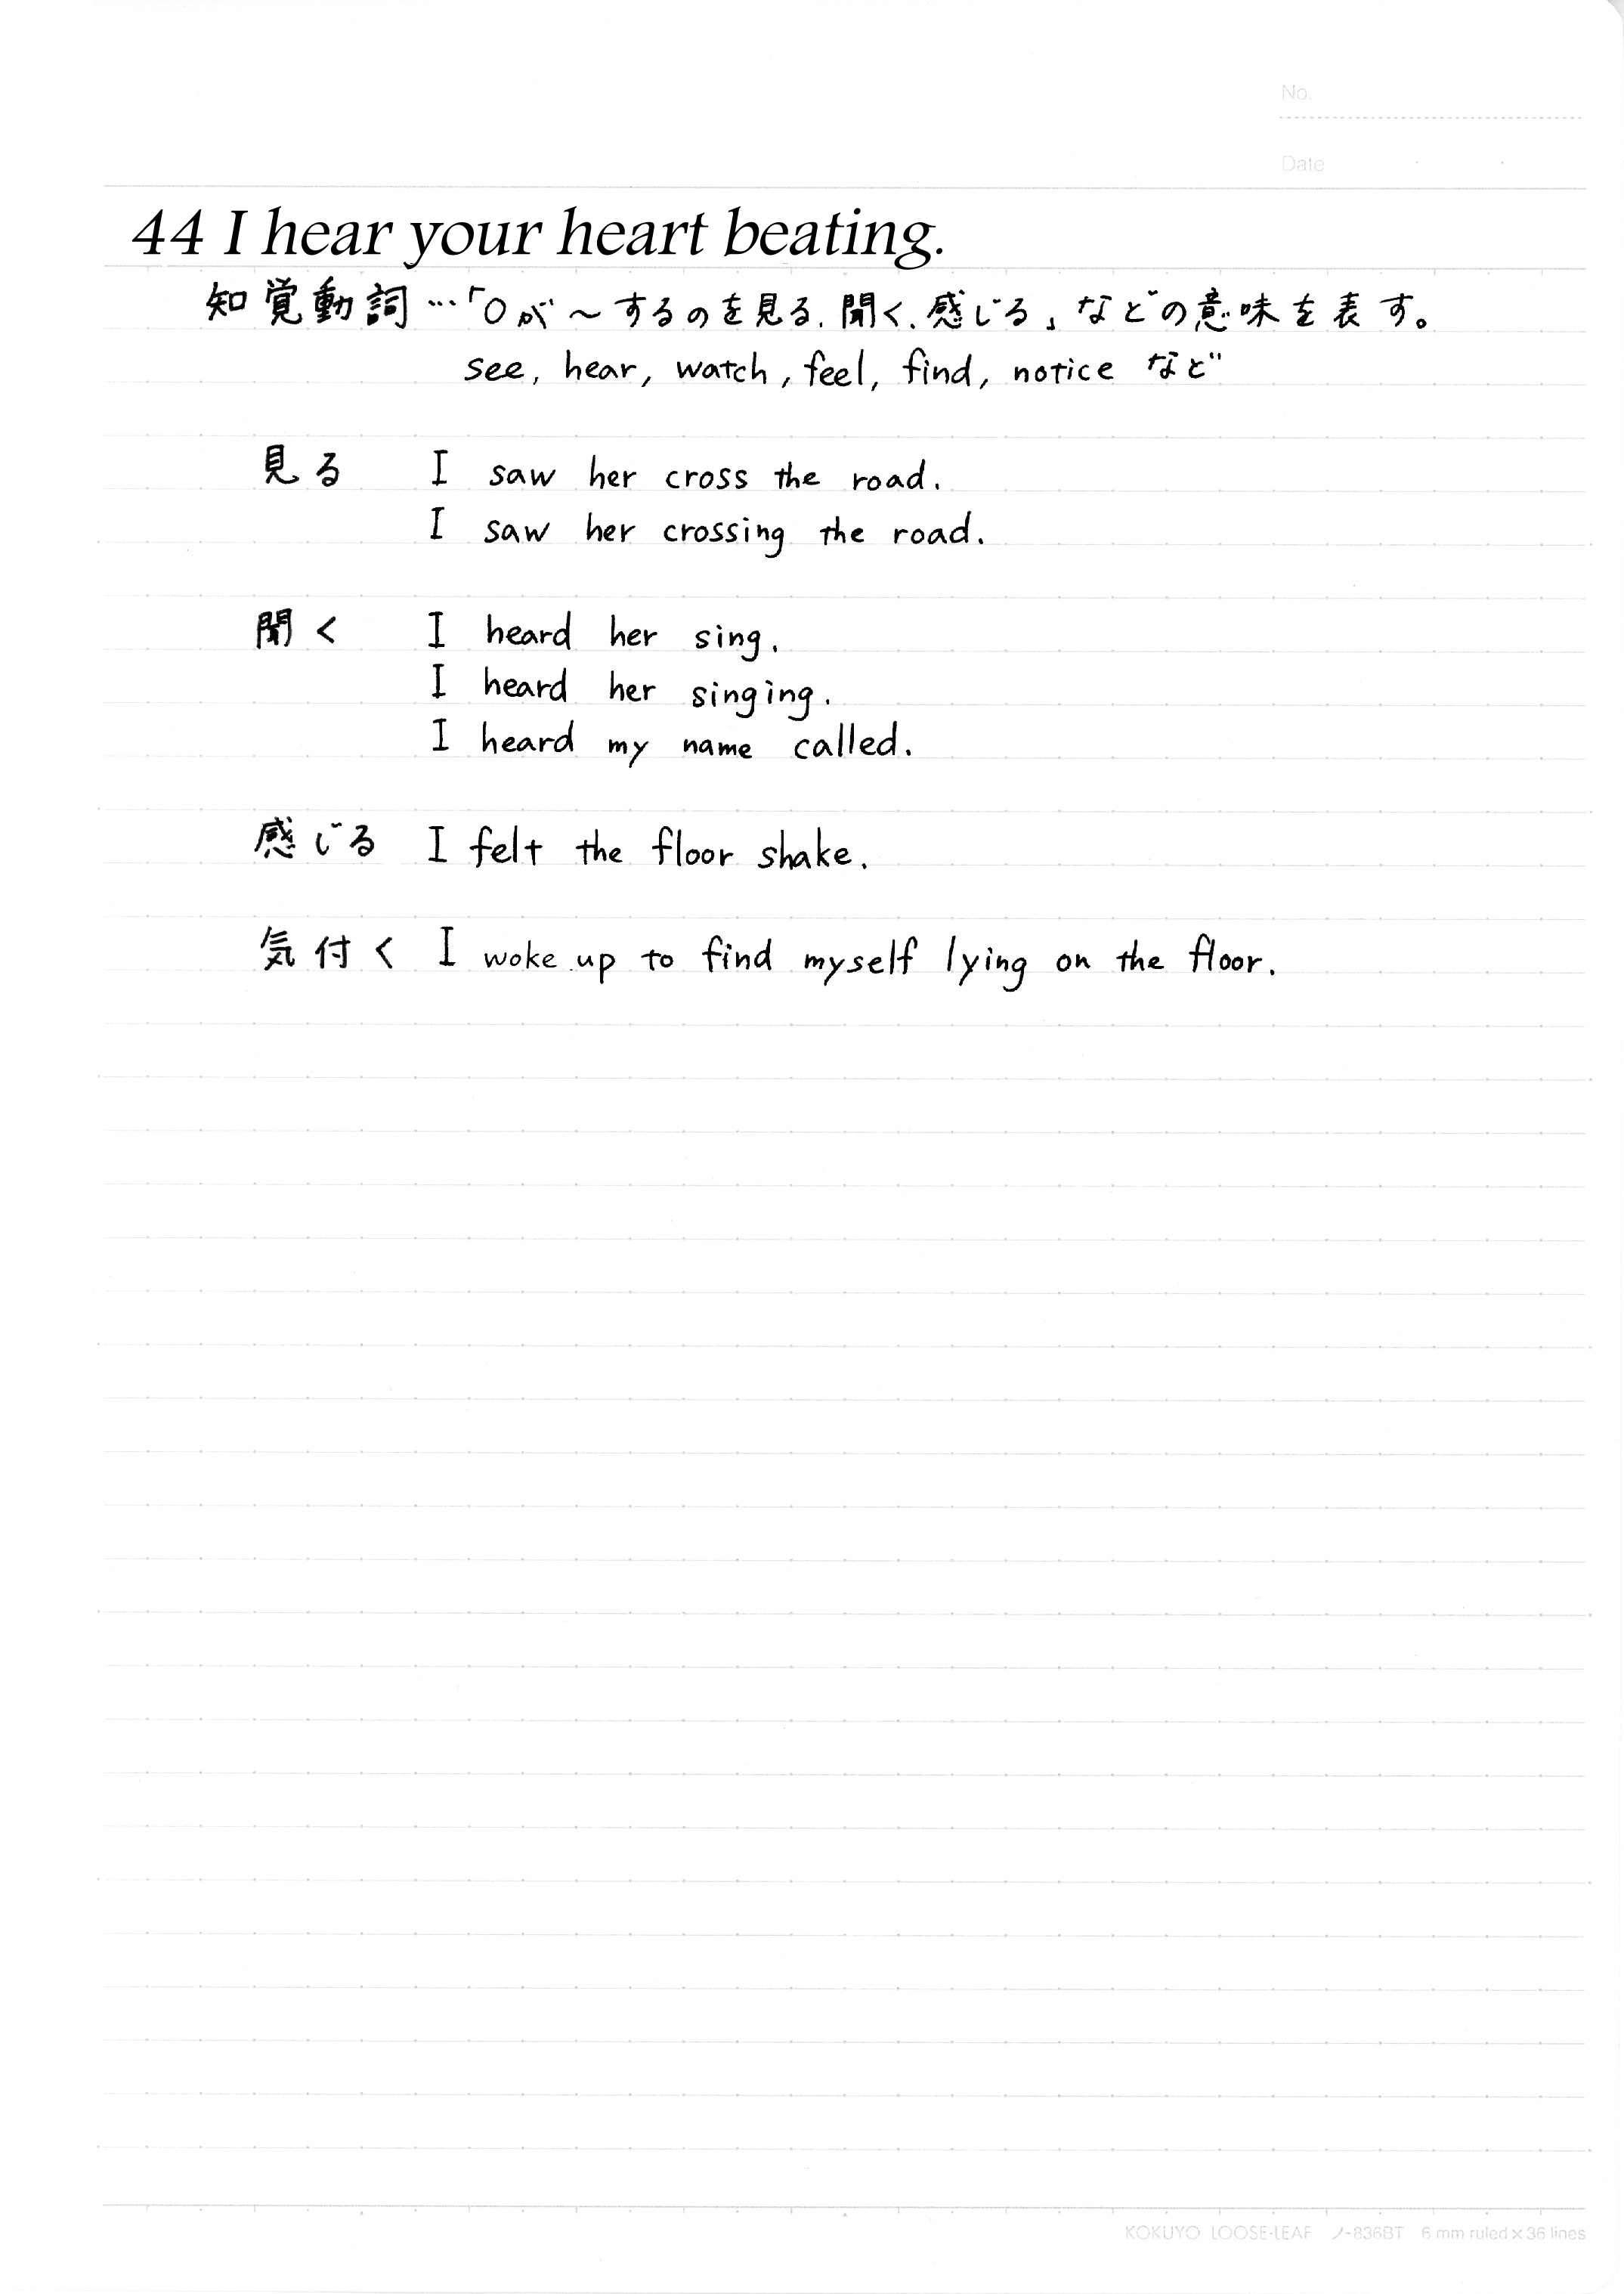 No.
Date
44 I hear your heart beating.
知覚動詞…「Oが〜するのを見る、聞く、感じる」などの意味を表す。
see, hear, watch, feel, find, notice など
見る I saw her cross the road.
I saw her crossing the road.
聞く I heard her sing.
I heard her singing.
I heard my name called.
感じる I felt the floor shake.
気付く I woke up to find myself lying on the floor.
KOKUYO LOOSE-LEAF ノ-836BT 6 mm ruled x 36 lines